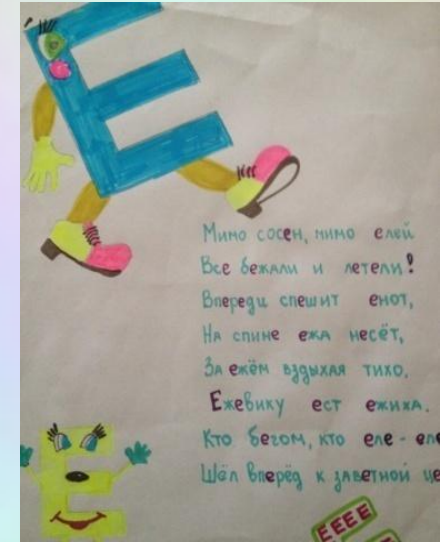 Е
Мимо сосен, мимо елей
Все бежали и летели!
Впереди спешит енот,
На спине ежа несёт,
За ежём вздыхая тихо.
Ежевику ест ежиха.
Кто бегом, кто еле - еле
Шёл вперёд к заветной це
Е
ЕЕЕЕ